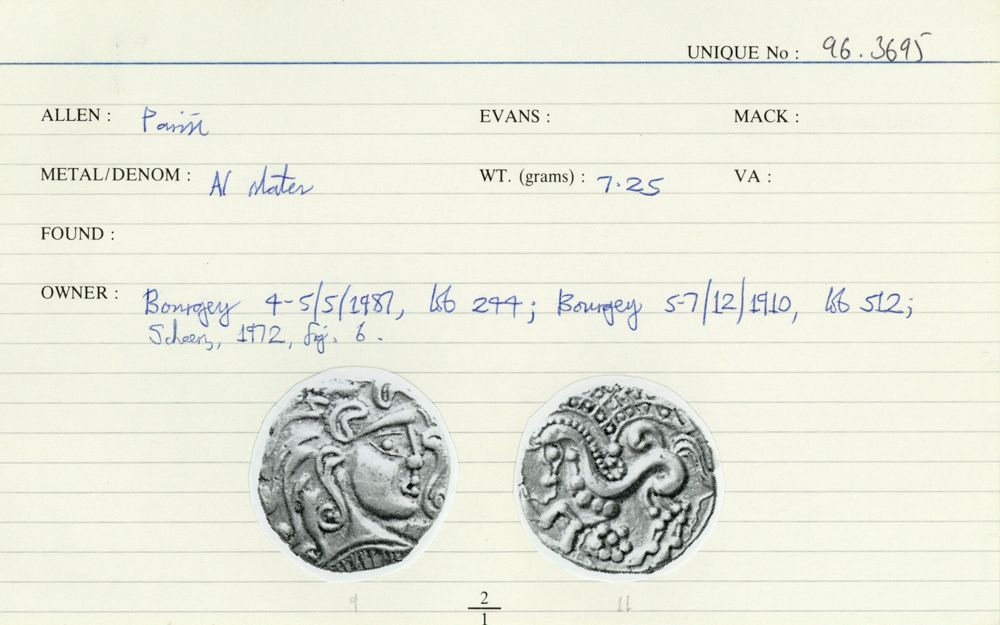 UNIQUE No : 96.3695
ALLEN : Parisii EVANS : MACK :
METAL/DENOM : AV stater WT. (grams) : 7.25 VA :
FOUND :
OWNER : Bourgey 4-5/5/1987, lot 244; Bourgey 5-7/12/1910, lot 512;
Scheers, 1972, fig. 6.
9 2 11
1